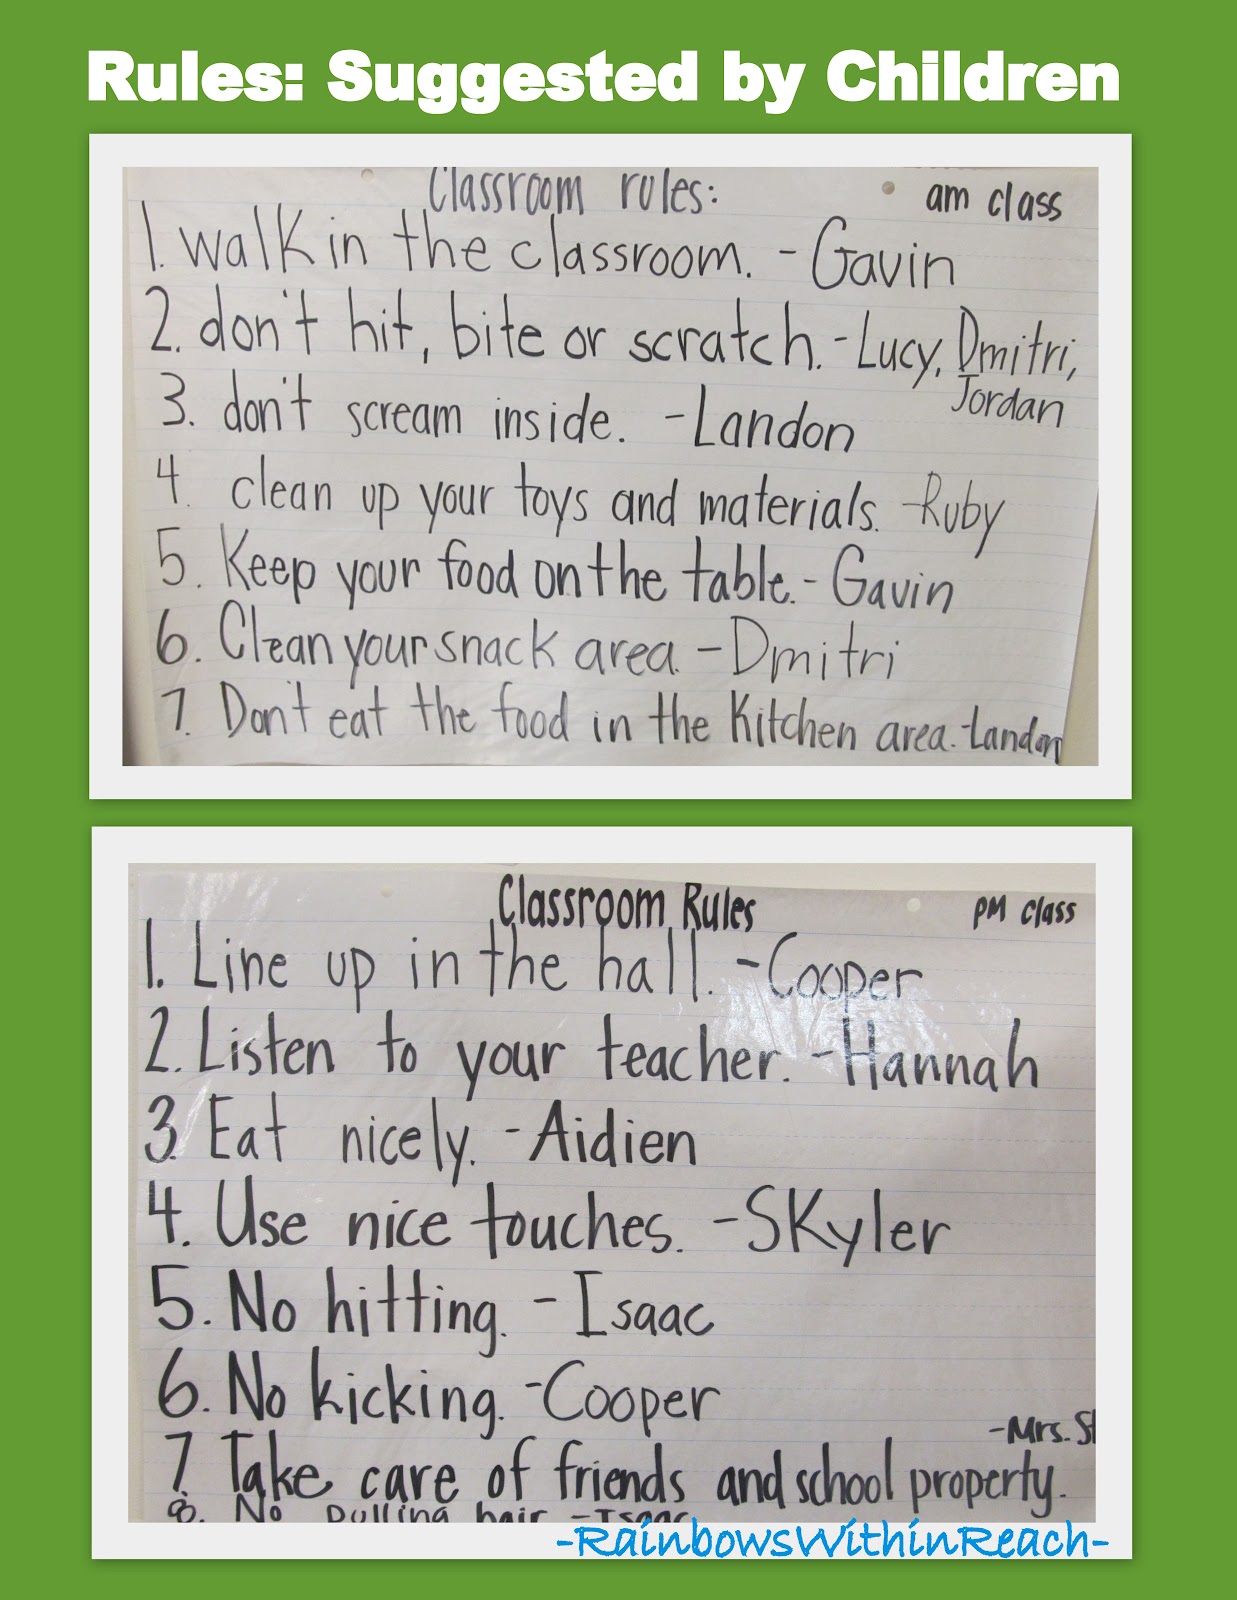 Rules: Suggested by Children
Classroom rules: am class
1. walk in the classroom. - Gavin
2. don't hit, bite or scratch. - Lucy, Dmitri,
Jordan
3. don't scream inside. - Landon
4. clean up your toys and materials. - Ruby
5. Keep your food on the table. - Gavin
6. Clean your snack area. - Dmitri
7. Don't eat the food in the Kitchen area. - Landon
Classroom Rules PM Class
1. Line up in the hall. - Cooper
2. Listen to your teacher. - Hannah
3. Eat nicely. - Aidien
4. Use nice touches. - SKyler
5. No hitting. - Isaac
6. No kicking. - Cooper
- Mrs.
7. Take care of friends and school property.
8. No pulling hair - Isaac
-RainbowsWithinReach-